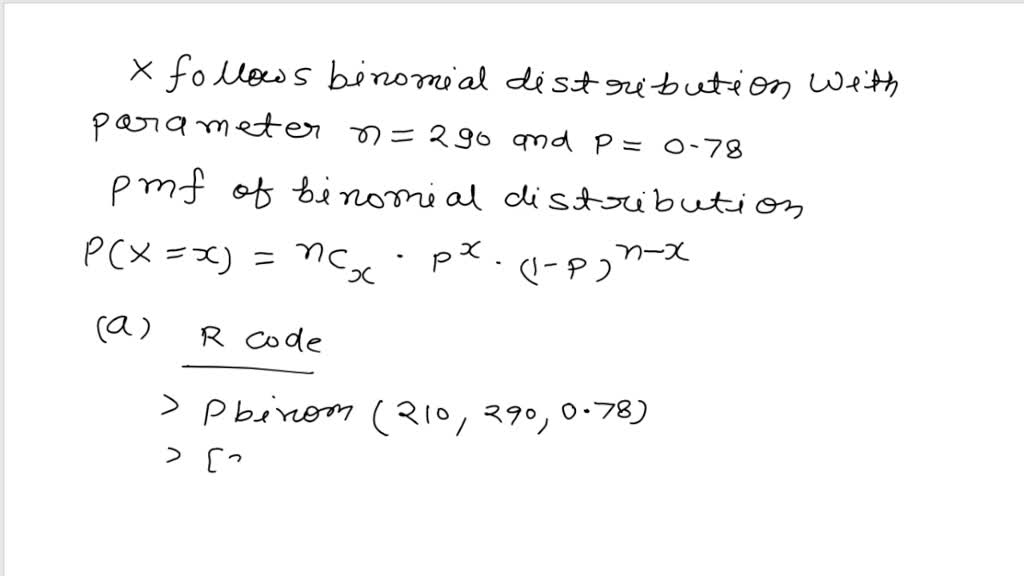 x follows binomial distribution with
parameter n = 290 and P = 0.78
pmf of binomial distribution
P(X = x) = nCx · p^x · (1-P)^n-x
(a) R code
> Pbinom (210, 290, 0.78)
> [